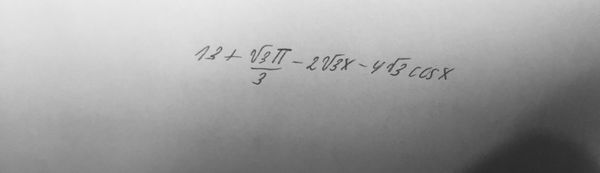 13 + √3π/3 - 2√3x - 4√3 cosx